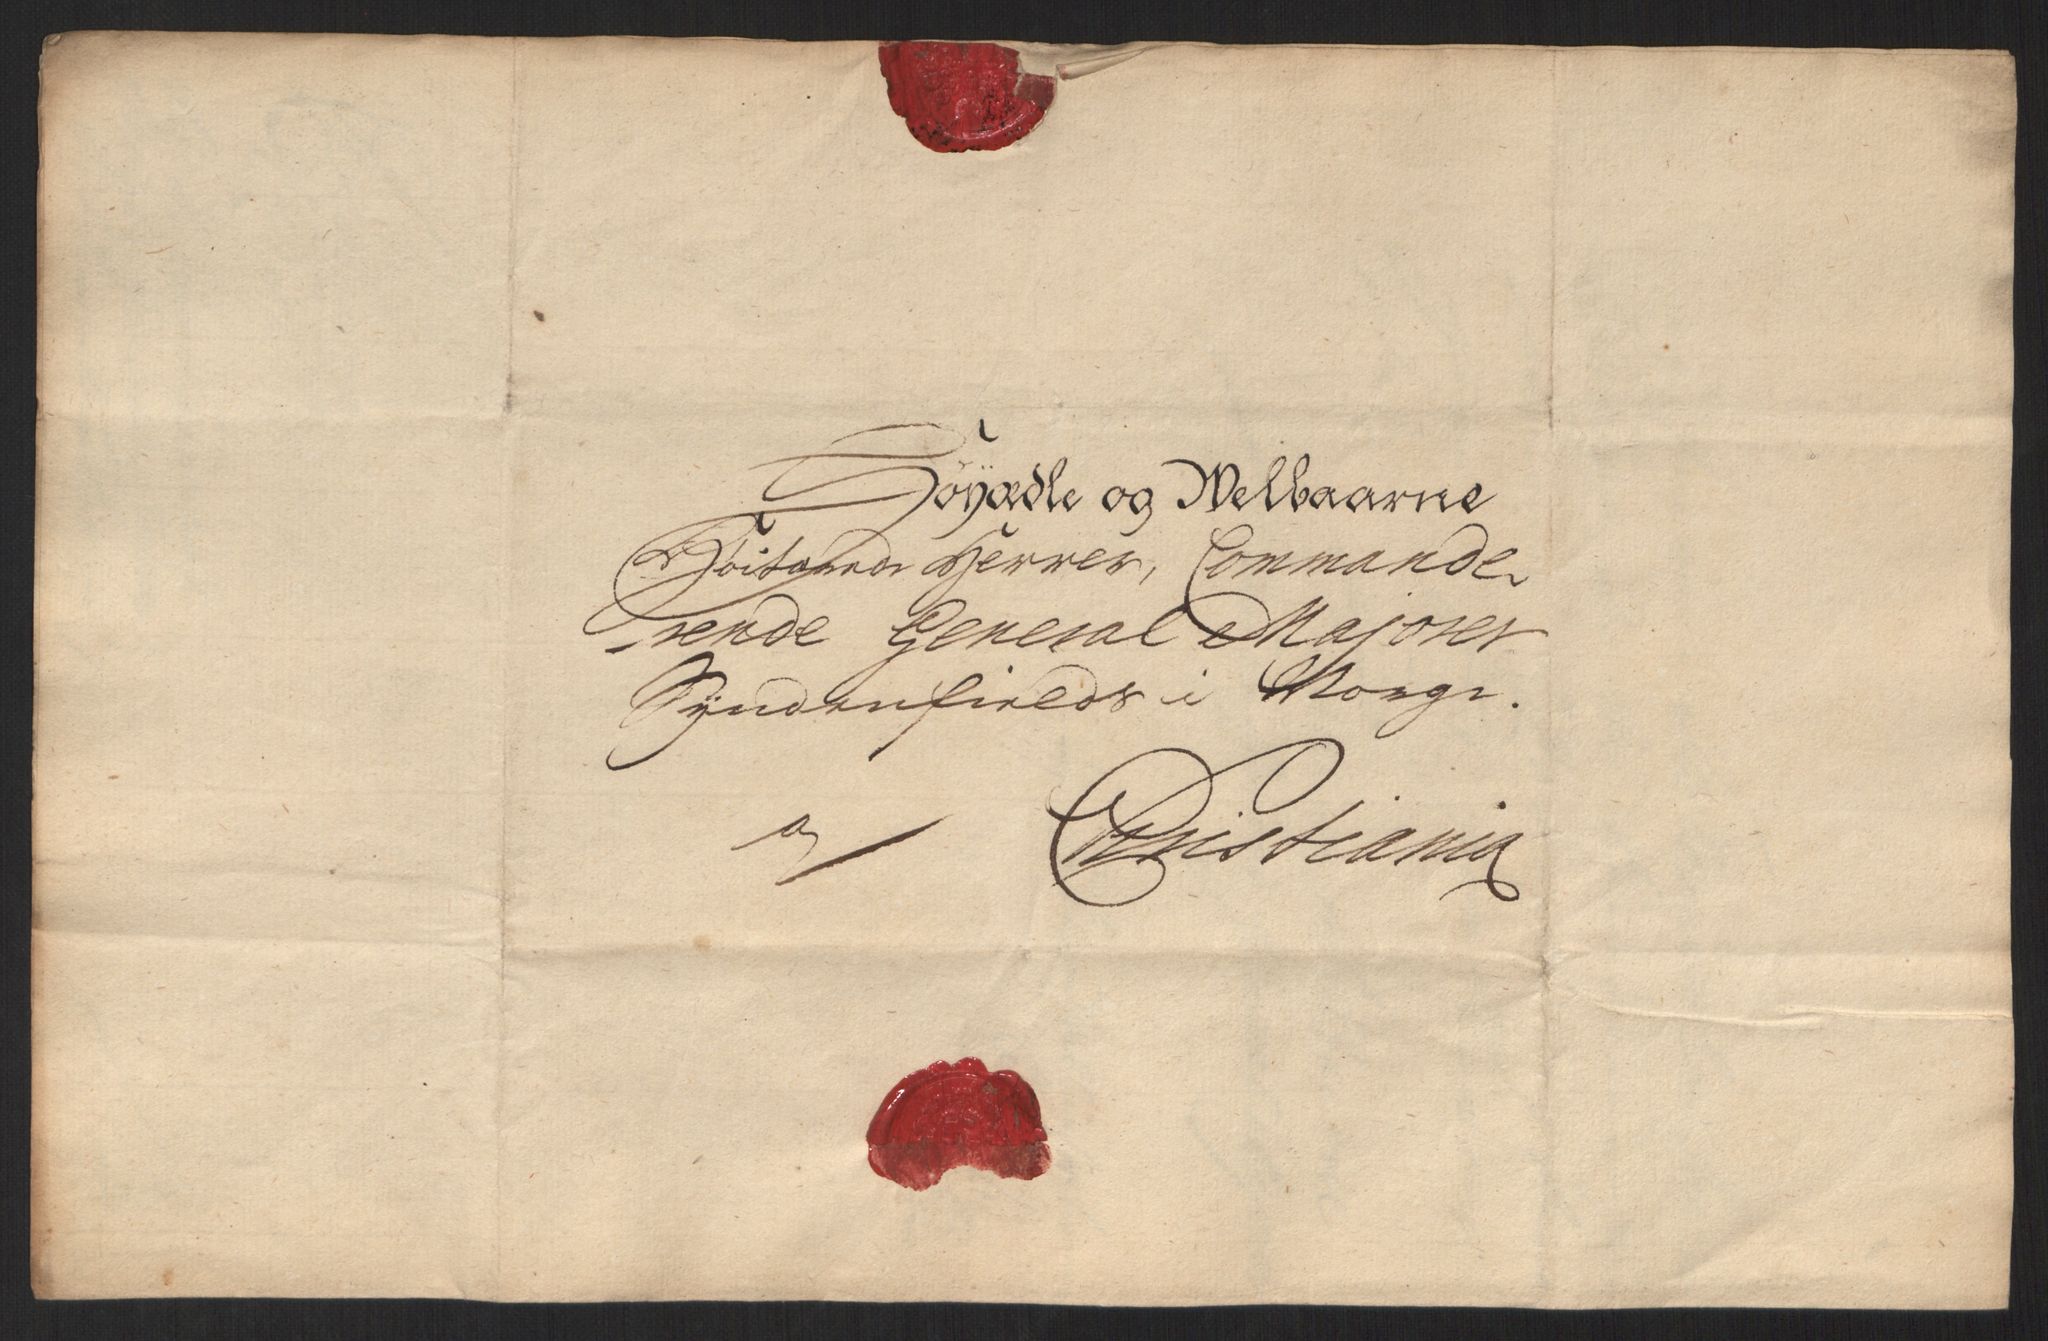 Høyædle og Welbaarne
Høitærede Herrer, Commande
rende General Majorer
Syndenfields i Norge.
a Christiania